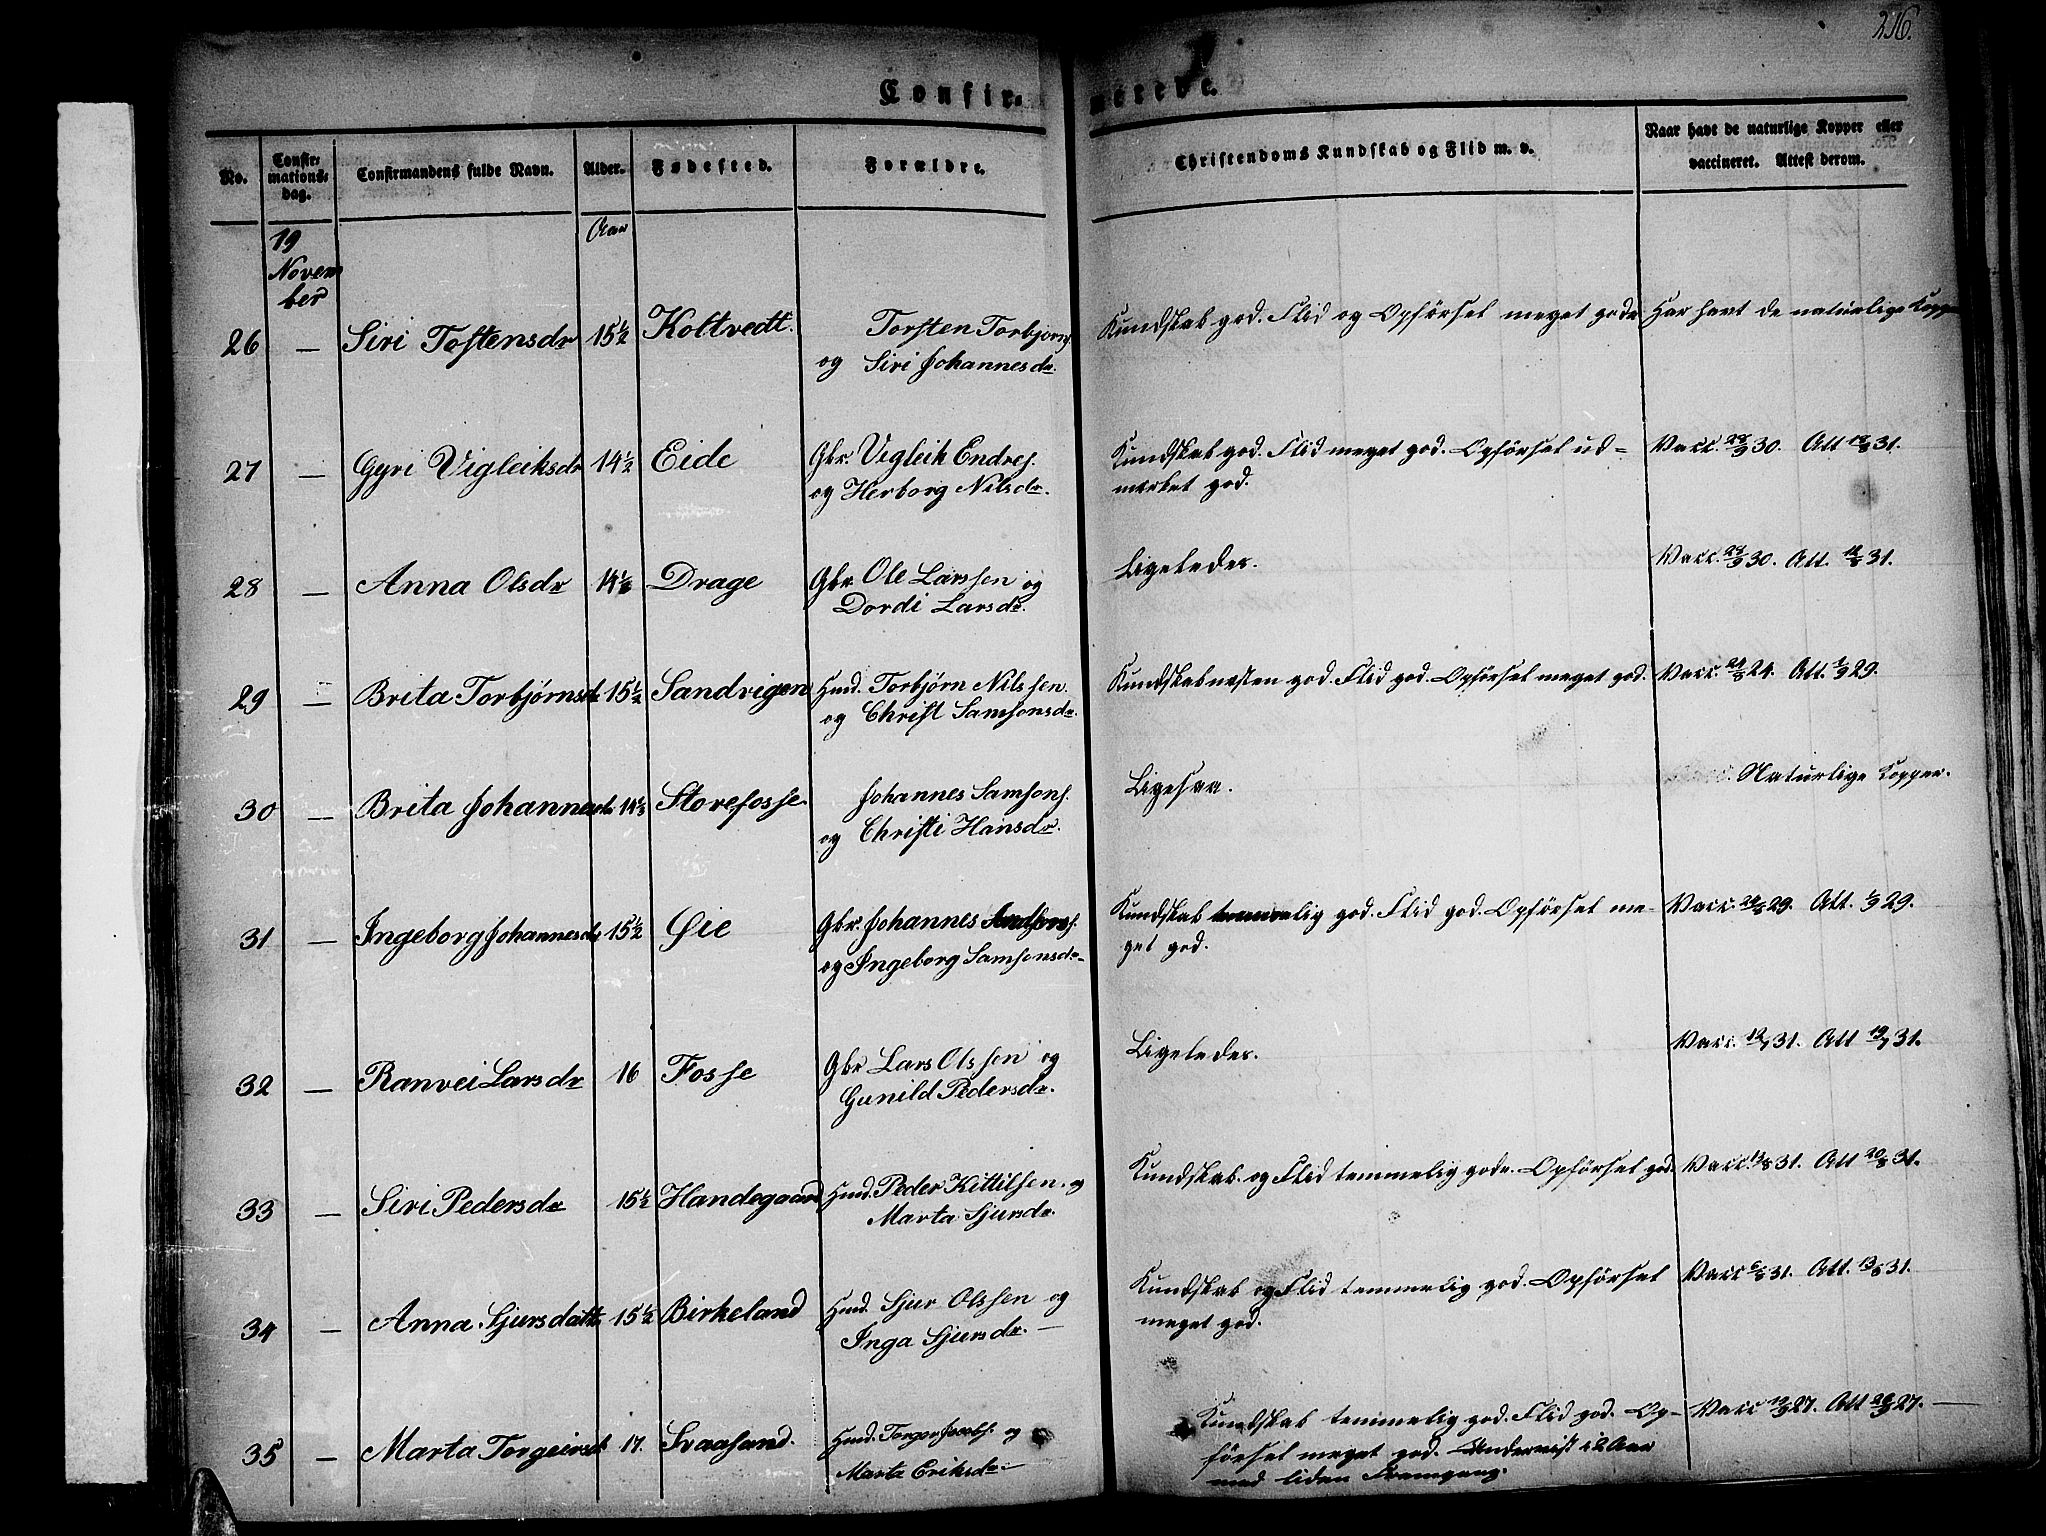 216.
Confir-
merede.
No.
Confir-
mations-
dag.
Confirmandens fulde Navn.
Alder.
Fødested.
Forældre.
Christendoms Kundskab og Flid m. v.
Naar havt de naturlige Kopper eller
vaccineret. Attest derom.
19
Novem
ber
Aar
26 — Siri Tostensdr 15½ Koltvedt. Torsten Torbjørns.
og Siri Johannesdr.
Kundskab god. Flid og Opførsel meget gode
Har havt de naturlige Kopper
27 — Gyri Vigleiksdr 14½ Eide Gbr. Vigleik Endres.
og Herborg Nilsdr.
Kundskab god. Flid meget god. Opførsel ud=
mærket god.
Vacc. 28/9 30. Att 18/8 31.
28 — Anna Olsdr 14½ Drage Gbr Ole Larssen og
Dordi Larsdr.
Ligeledes.
Vacc. 29/9 30. Att. 18/8 31.
29 — Brita Torbjørnsdr 15½ Sandvigen Hmd. Torbjørn Nilssen.
og Christ Samsonsdr.
Kundskab næsten god. Flid god. Opførsel meget god.
Vacc. 24/8 24. Att. 1/9 29.
30 — Brita Johannesdr 14½ Storefosse. Johannes Samsons.
og Christi Hansdr.
Ligesaa.
Naturlige Kopper.
31 — Ingeborg Johannesdr 15½ Øie Gbr. Johannes
og Ingeborg Samsonsdr
Kundskab temmelig god. Flid god. Opførsel me-
get god.
Vacc. 24/8 29. Att. 1/9 29.
32 — Ranvei Larsdr 16 Fosse Gbr Lars Olssen og
Gunild Pedersdr.
Ligeledes.
Vacc. 12/7 31. Att 19/7 31.
33 — Siri Pedersdr 15½ Handegaard Hmd. Peder Kittilsen. og
Marta Sjursdr.
Kundskab og Flid temmelig gode. Opførsel god.
Vacc. 13/8 31. Att 20/8 31.
34 — Anna Sjursdattr 15½ Birkeland Hmd. Sjur Olssen og
Inga Sjursdr. —
Kundskab og Flid temmelig god. Opførsel
meget god.
Vacc 6/8 31. Att. 13/8 31.
35 — Marta Torgeirsd 17. Svaasand. Hmd. Torger Jacobs. og
Marta Eriksdr. —
Kundskab temmelig god. Flid god. Op-
førsel meget god. Undervist i 2 Aar
med liden Fremgang.
Vacc 19/9 27. Att 26/9 27. —